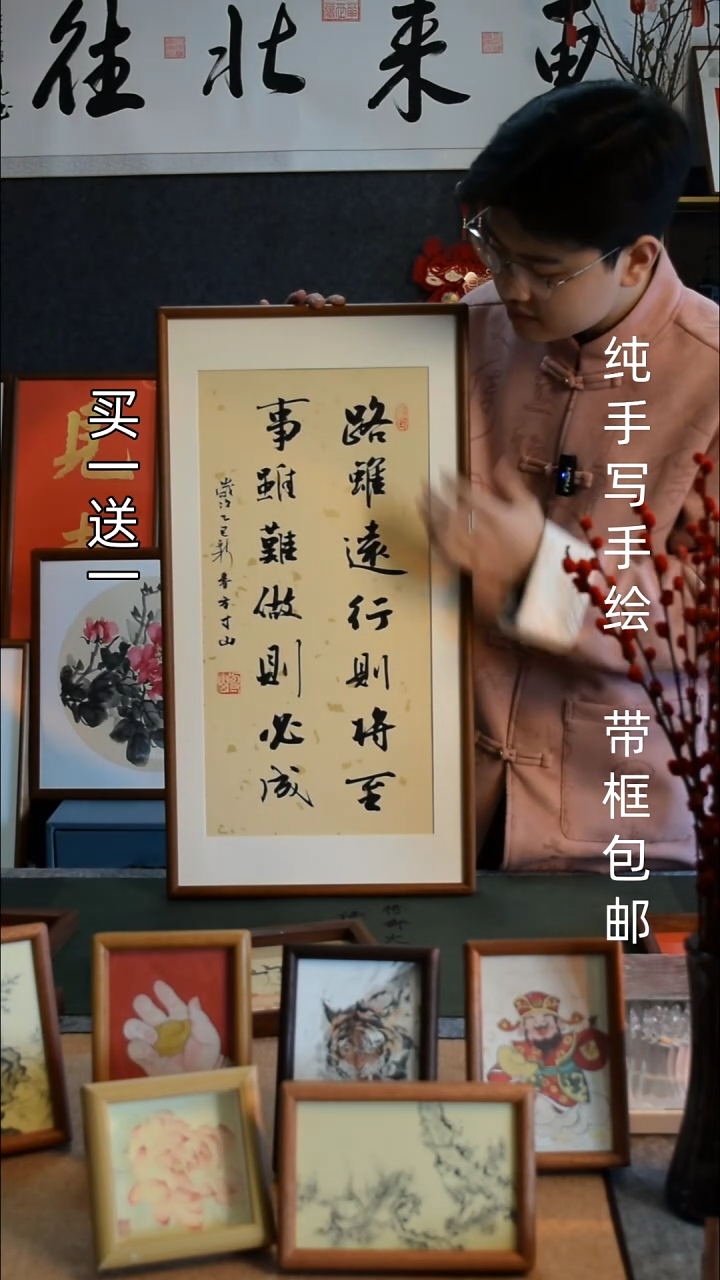 往北来
买一送一
纯手写手绘 带框包邮
路雖遠行則將至
事雖難做則必成
歲次乙巳秋
方寸山